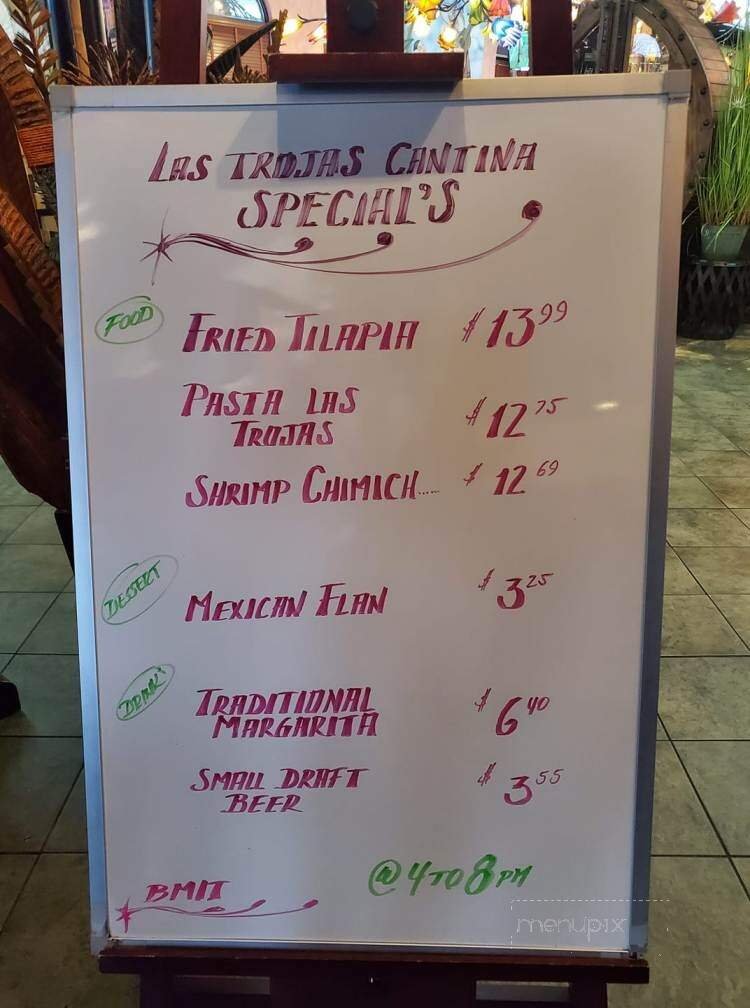 LAS TROJAS CANTINA
SPECIAL'S
FOOD
FRIED TILAPIA $ 13.99
PASTA LAS
TROJAS $ 12.75
SHRIMP CHIMICH..... $ 12.69
DESSERT
MEXICAN FLAN $ 3.25
DRINK'
TRADITIONAL
MARGARITA $ 6.40
SMALL DRAFT
BEER $ 3.55
@ 4 TO 8 PM
BMIT
menupix